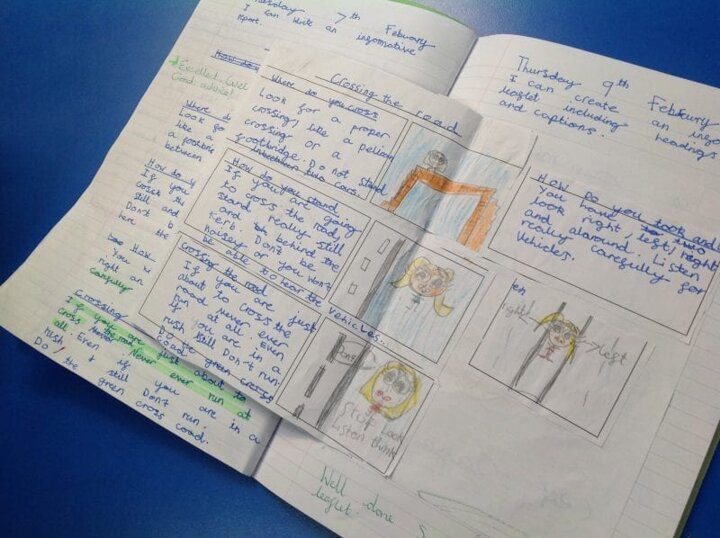 7th Febuary
I can write an informative
report.
Excellent
Good advice!
Crossing the road
Where do you cross
Look for a proper
crossing, like a pelican
crossing or a
footbridge. Do not stand
between two cars
How do you stand.
If you are going
to cross the road,
stand really still
and behind the
kerb. Don't be
noisey or you won't
be able to hear the
vehicles...
Crossing the road
If you are just
about to cross the
road never ever
run at all. even
if you are in a
rush still Don't run.
Do the green cross
coad
Stop Look
Listen think
Thursday 9th Febuary
I can create an
leaflet including headings
and captions.
How Do you look and
You have to
look right, left, right
and alaround. Listen
really carefully for
Vehicles.
right
left
Where do
Look for
a footbri
between
How do y
If you
still and
Don't b
You h
right an
carefully
Crossing
If you are just about to
cross the road Never ever run at
all. Even if you are in a
rush still Don't run.
Do the green cross coad.
Well done
leaflet.